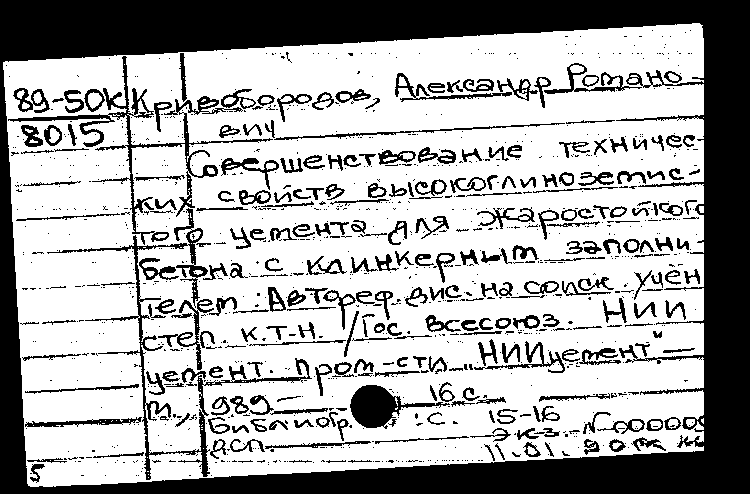 89-50К Кривобородов, Александр Романо-
8015 вич
Совершенствование техничес-
ких свойств высокоглиноземис-
того цемента для жаростойкого
бетона с клинкерным заполни-
телем: Автореф. дис. на соиск. учён
степ. к.т.н. / Гос. Всесоюз. НИИ
цемент. пром-сти "НИИцемент". —
М., 1989. — 16 с.
Библиогр.: с. 15-16
ДСП. Экз. - №000009
11.01.
5